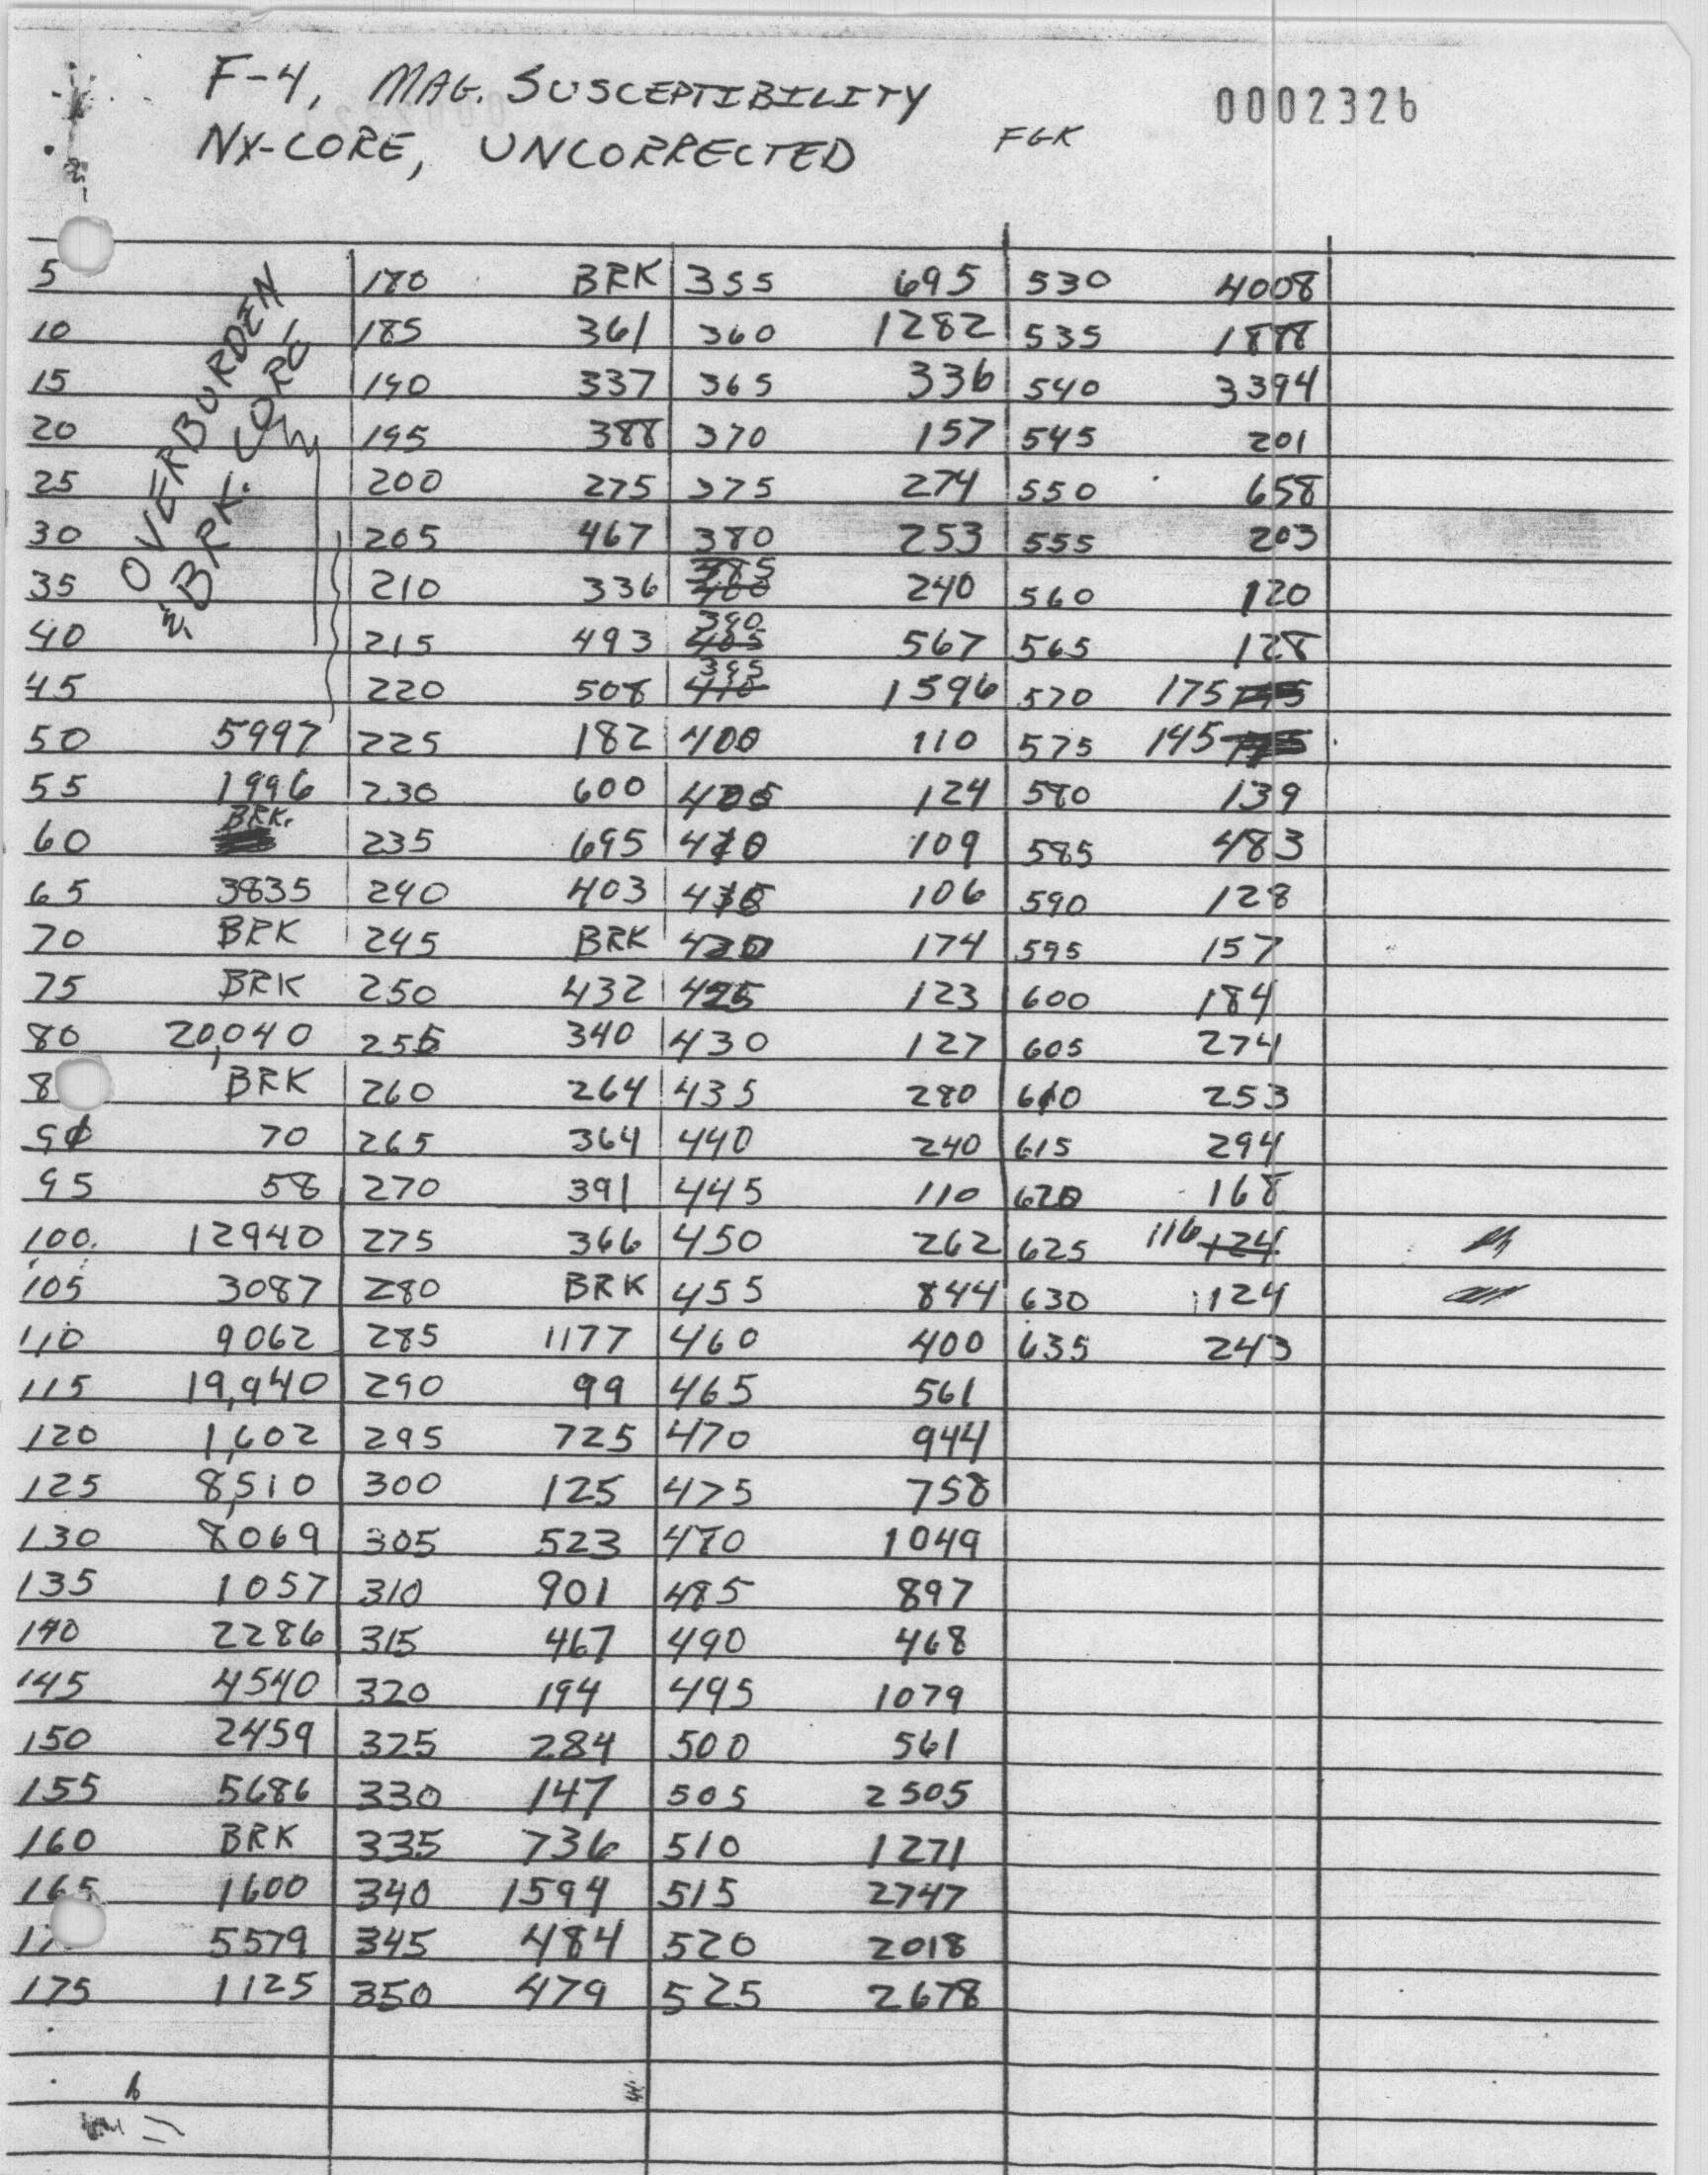 F-4, MAG. SUSCEPTIBILITY 0002326
NX-CORE, UNCORRECTED FGK
OVERBURDEN
& BRK. CORE
5 180 BRK 355 695 530 4008
10 185 361 360 1282 535 1888
15 190 337 365 336 540 3394
20 195 388 370 157 545 201
25 200 275 375 274 550 658
30 205 467 380 253 555 203
35 210 336 385 400 240 560 120
40 215 493 390 405 567 565 128
45 220 508 395 410 1596 570 175
50 5997 225 182 400 110 575 145
55 1996 230 600 405 124 580 139
60 BRK. 235 695 410 109 585 483
65 3835 240 403 415 106 590 128
70 BRK 245 BRK 420 174 595 157
75 BRK 250 432 425 123 600 184
80 20,040 255 340 430 127 605 274
8 BRK 260 264 435 280 610 253
90 70 265 364 440 240 615 294
95 58 270 391 445 110 620 168
100 12940 275 366 450 262 625 116 124
105 3087 280 BRK 455 844 630 124
110 9062 285 1177 460 400 635 243
115 19,940 290 99 465 561
120 1,602 295 725 470 944
125 8,510 300 125 475 758
130 8069 305 523 480 1049
135 1057 310 901 485 897
140 2286 315 467 490 468
145 4540 320 194 495 1079
150 2459 325 284 500 561
155 5686 330 147 505 2505
160 BRK 335 736 510 1271
165 1600 340 1594 515 2747
17 5579 345 484 520 2018
175 1125 350 479 525 2678